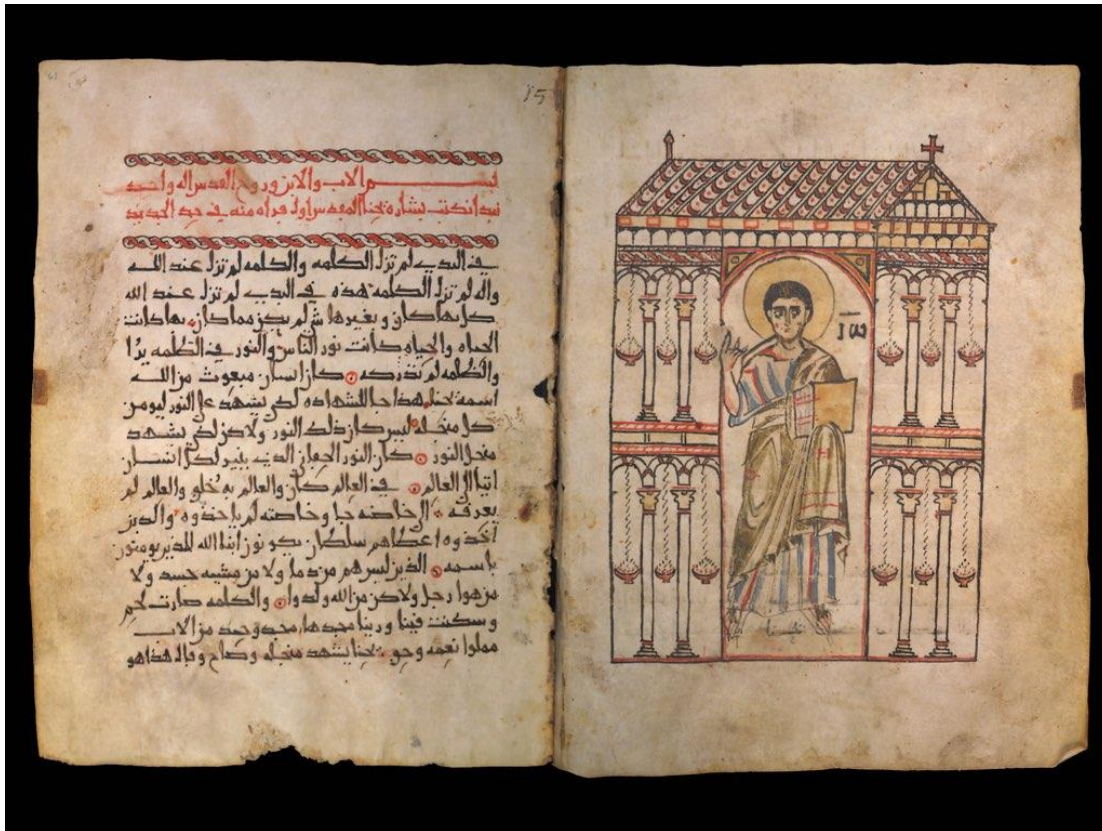 بسم الاب والابن وروح القدس اله واحد
نبدا نكتب بشارة يحنا المقدس اول قراه منه في حد الجديد
في البدي لم تزل الكلمه والكلمه لم تزل عند الله
واله لم تزل الكلمه هذه في البدي لم تزل عند الله
كل بها كان وبغيرها شي لم يكن مما كان بها كانت
الحياه والحياه كانت نور الناس والنور في الظلمه يرا
والظلمه لم تدركه كان انسان مبعوث من الله
اسمه يحنا هذا جا للشهاده لكي يشهد على النور ليومن
كل منجله ليس كان ذلك النور ولاكن لكي يشهد
منجل النور كان النور الحقاني الذي ينير لكل انسان
اتيا الى العالم في العالم كان والعالم به خلق والعالم لم
يعرفه الى خاصته جا وخاصته لم ياخذوه والذين
اخذوه اعطاهم سلطان يكونون ابنا الله للذين يومنون
باسمه الذين ليس هم من دما ولا من مشيه جسد ولا
من هوا رجل ولاكن من الله ولدوا والكلمه صارت لحم
وسكنت فينا وراينا مجدها مجد وحيد من الاب
مملوا نعمه وحق يحنا يشهد منجله وصاح وقال هذا هو
ΙΩ